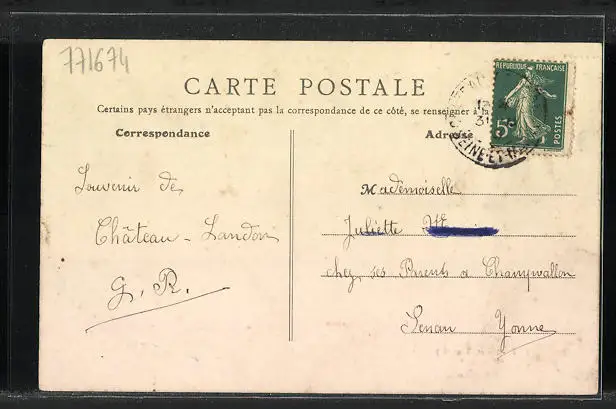 771674
CARTE POSTALE
Certains pays étrangers n'acceptant pas la correspondance de ce côté, se renseigner à la
Correspondance
Adresse
RÉPUBLIQUE FRANÇAISE
5c
POSTES
SEINE-ET-M
Souvenir de
Château-Landon
G. R.
Mademoiselle
Juliette
chez ses Parents à Champvallon
Senan Yonne